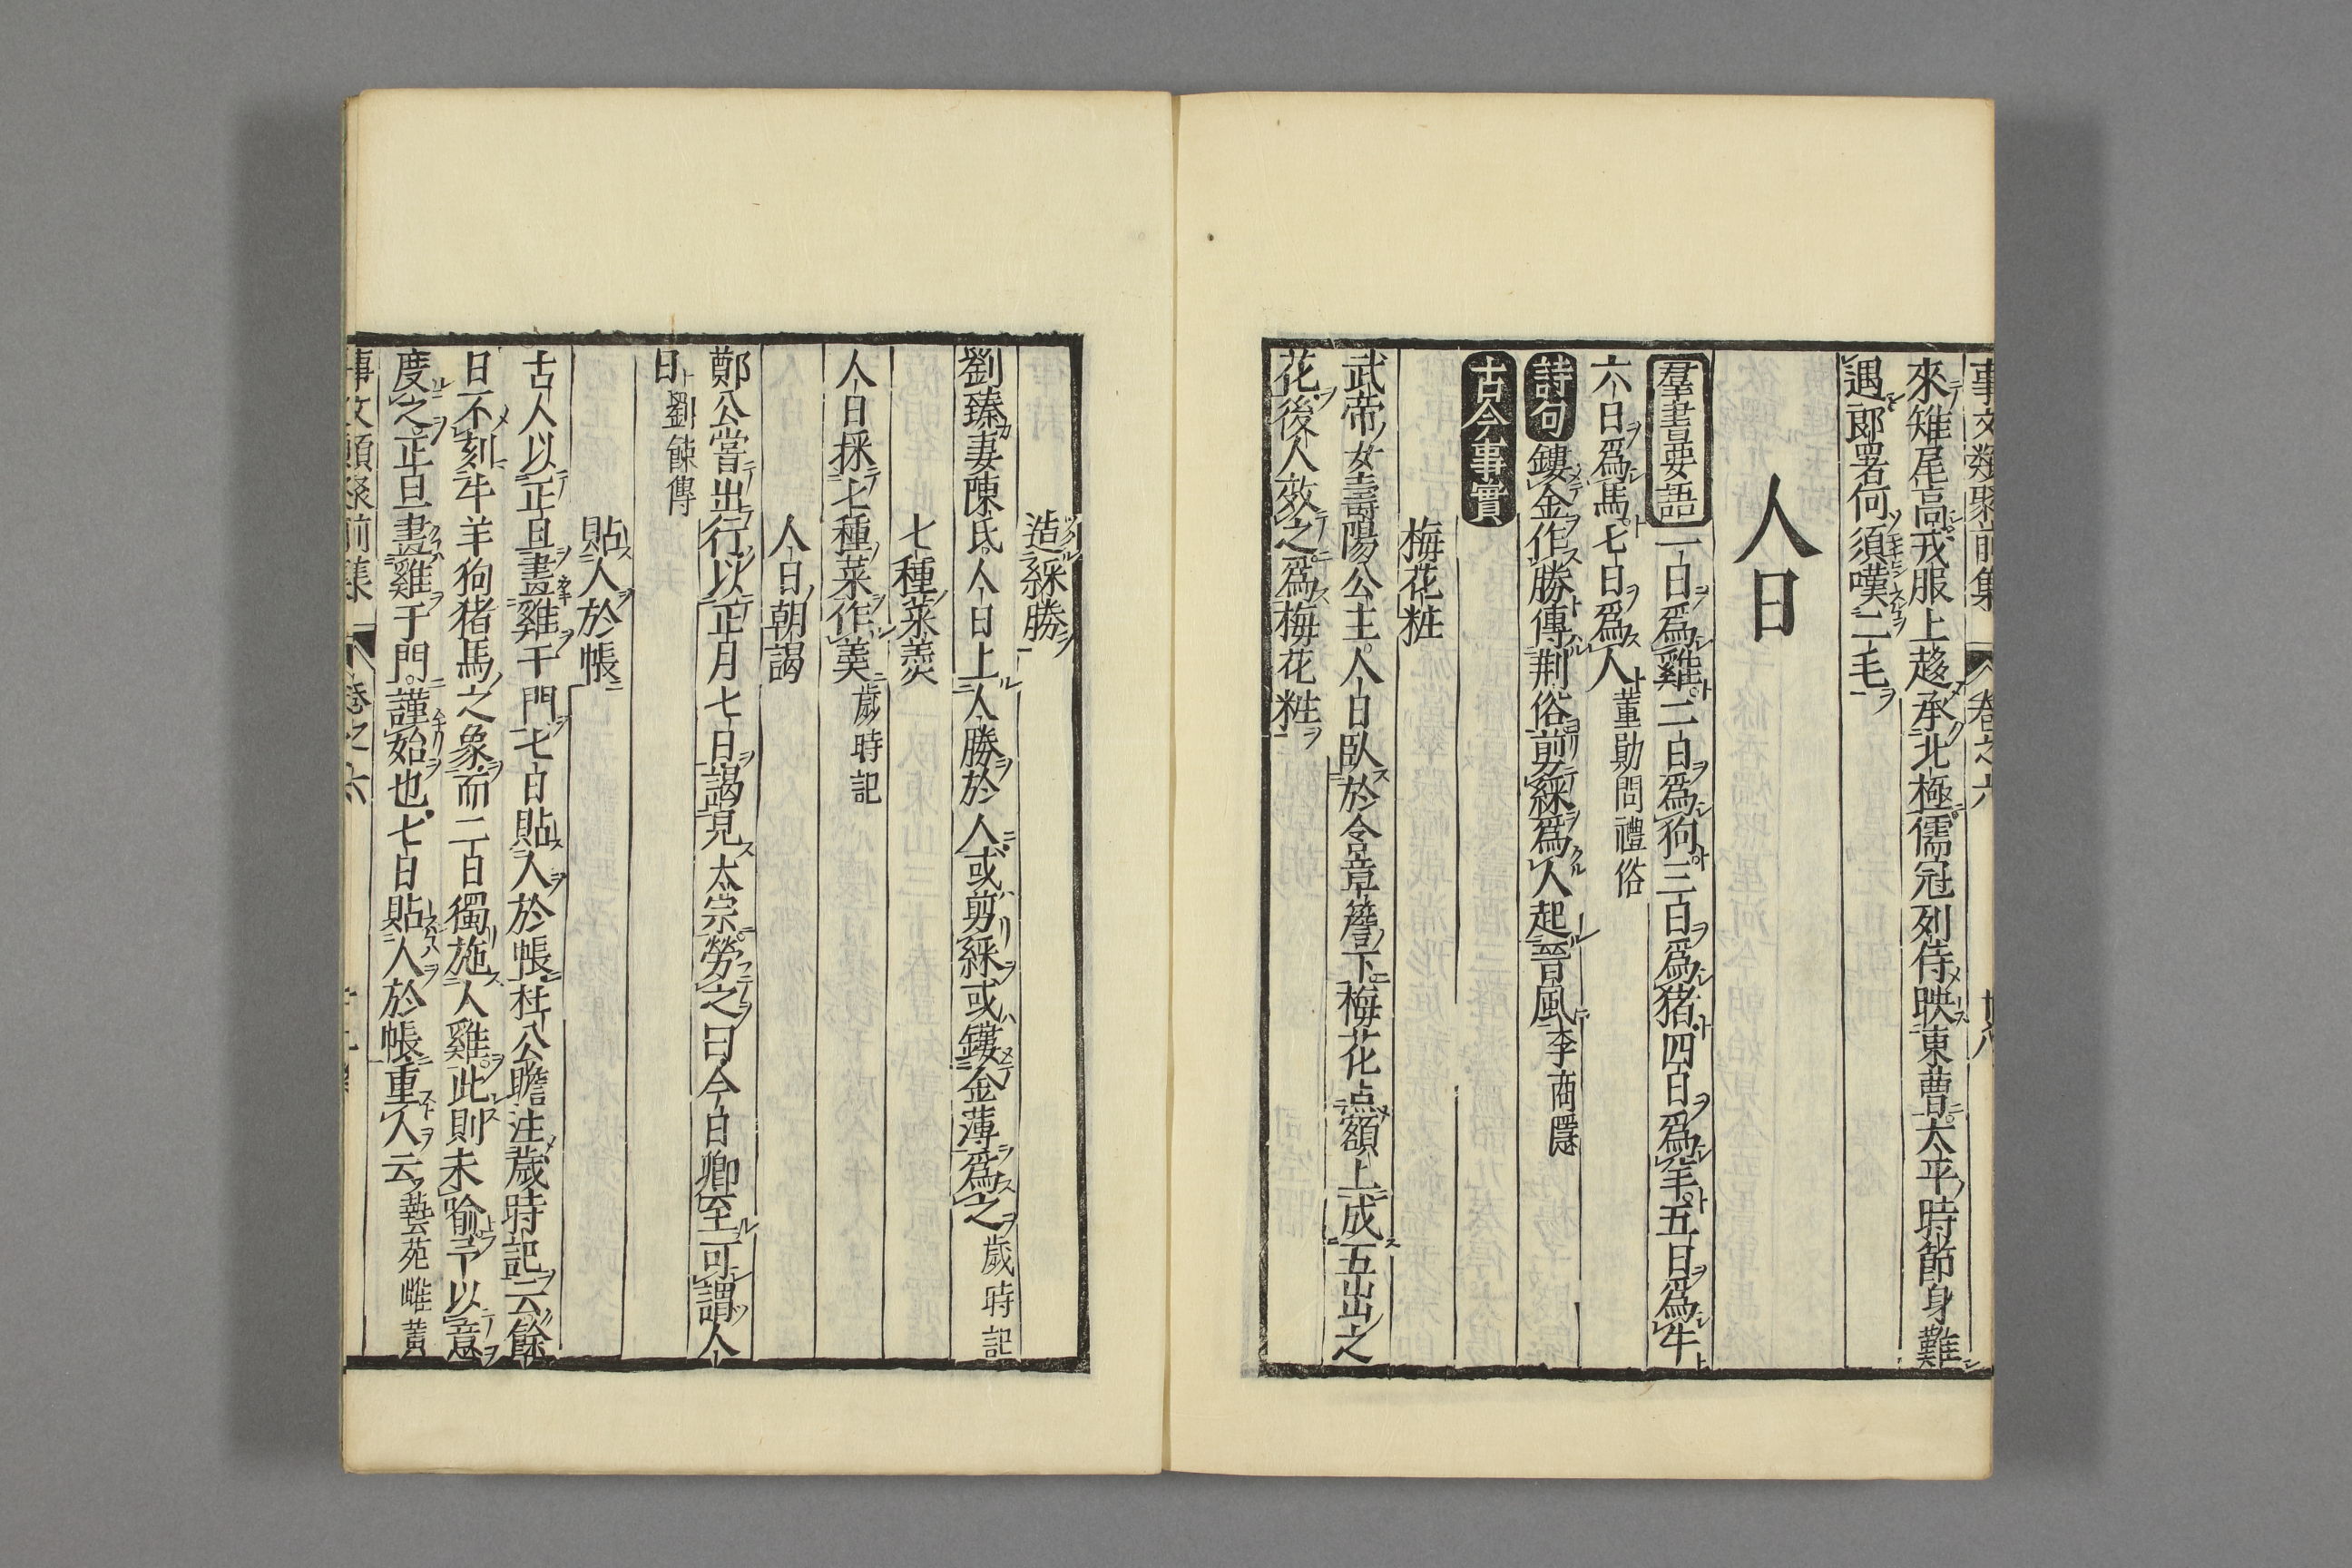 事文類聚前集 卷之六
來雉尾高戎服上趍承北極儒冠列侍映東曹太平時節身難
遇郎署何須嘆二毛
人日
羣書要語一日爲雞二日爲狗三日爲猪四日爲羊五日爲牛
六日爲馬七日爲人董勛問禮俗
詩句鏤金作勝傳荆俗剪綵爲人起晉風李商隱
古今事實
梅花粧
武帝女壽陽公主人日臥於含章簷下梅花点額上成五出之
花後人效之爲梅花粧
造綵勝
劉臻妻陳氏人日上人勝於人或剪綵或鏤金薄爲之歲時記
七種菜羹
人日採七種菜作羹歲時記
人日朝謁
鄭公嘗出行以正月七日謁見太宗勞之曰今日卿至可謂人
日劉餗傳
貼人於帳
古人以正旦畫雞于門七日貼人於帳杜公瞻注歲時記云餘
日不刻牛羊狗猪馬之象而二日獨施人雞此則未喻予以意
度之正旦畫雞于門謹始也七日貼人於帳重人云藝苑雌黃
事文類聚前集 卷之六